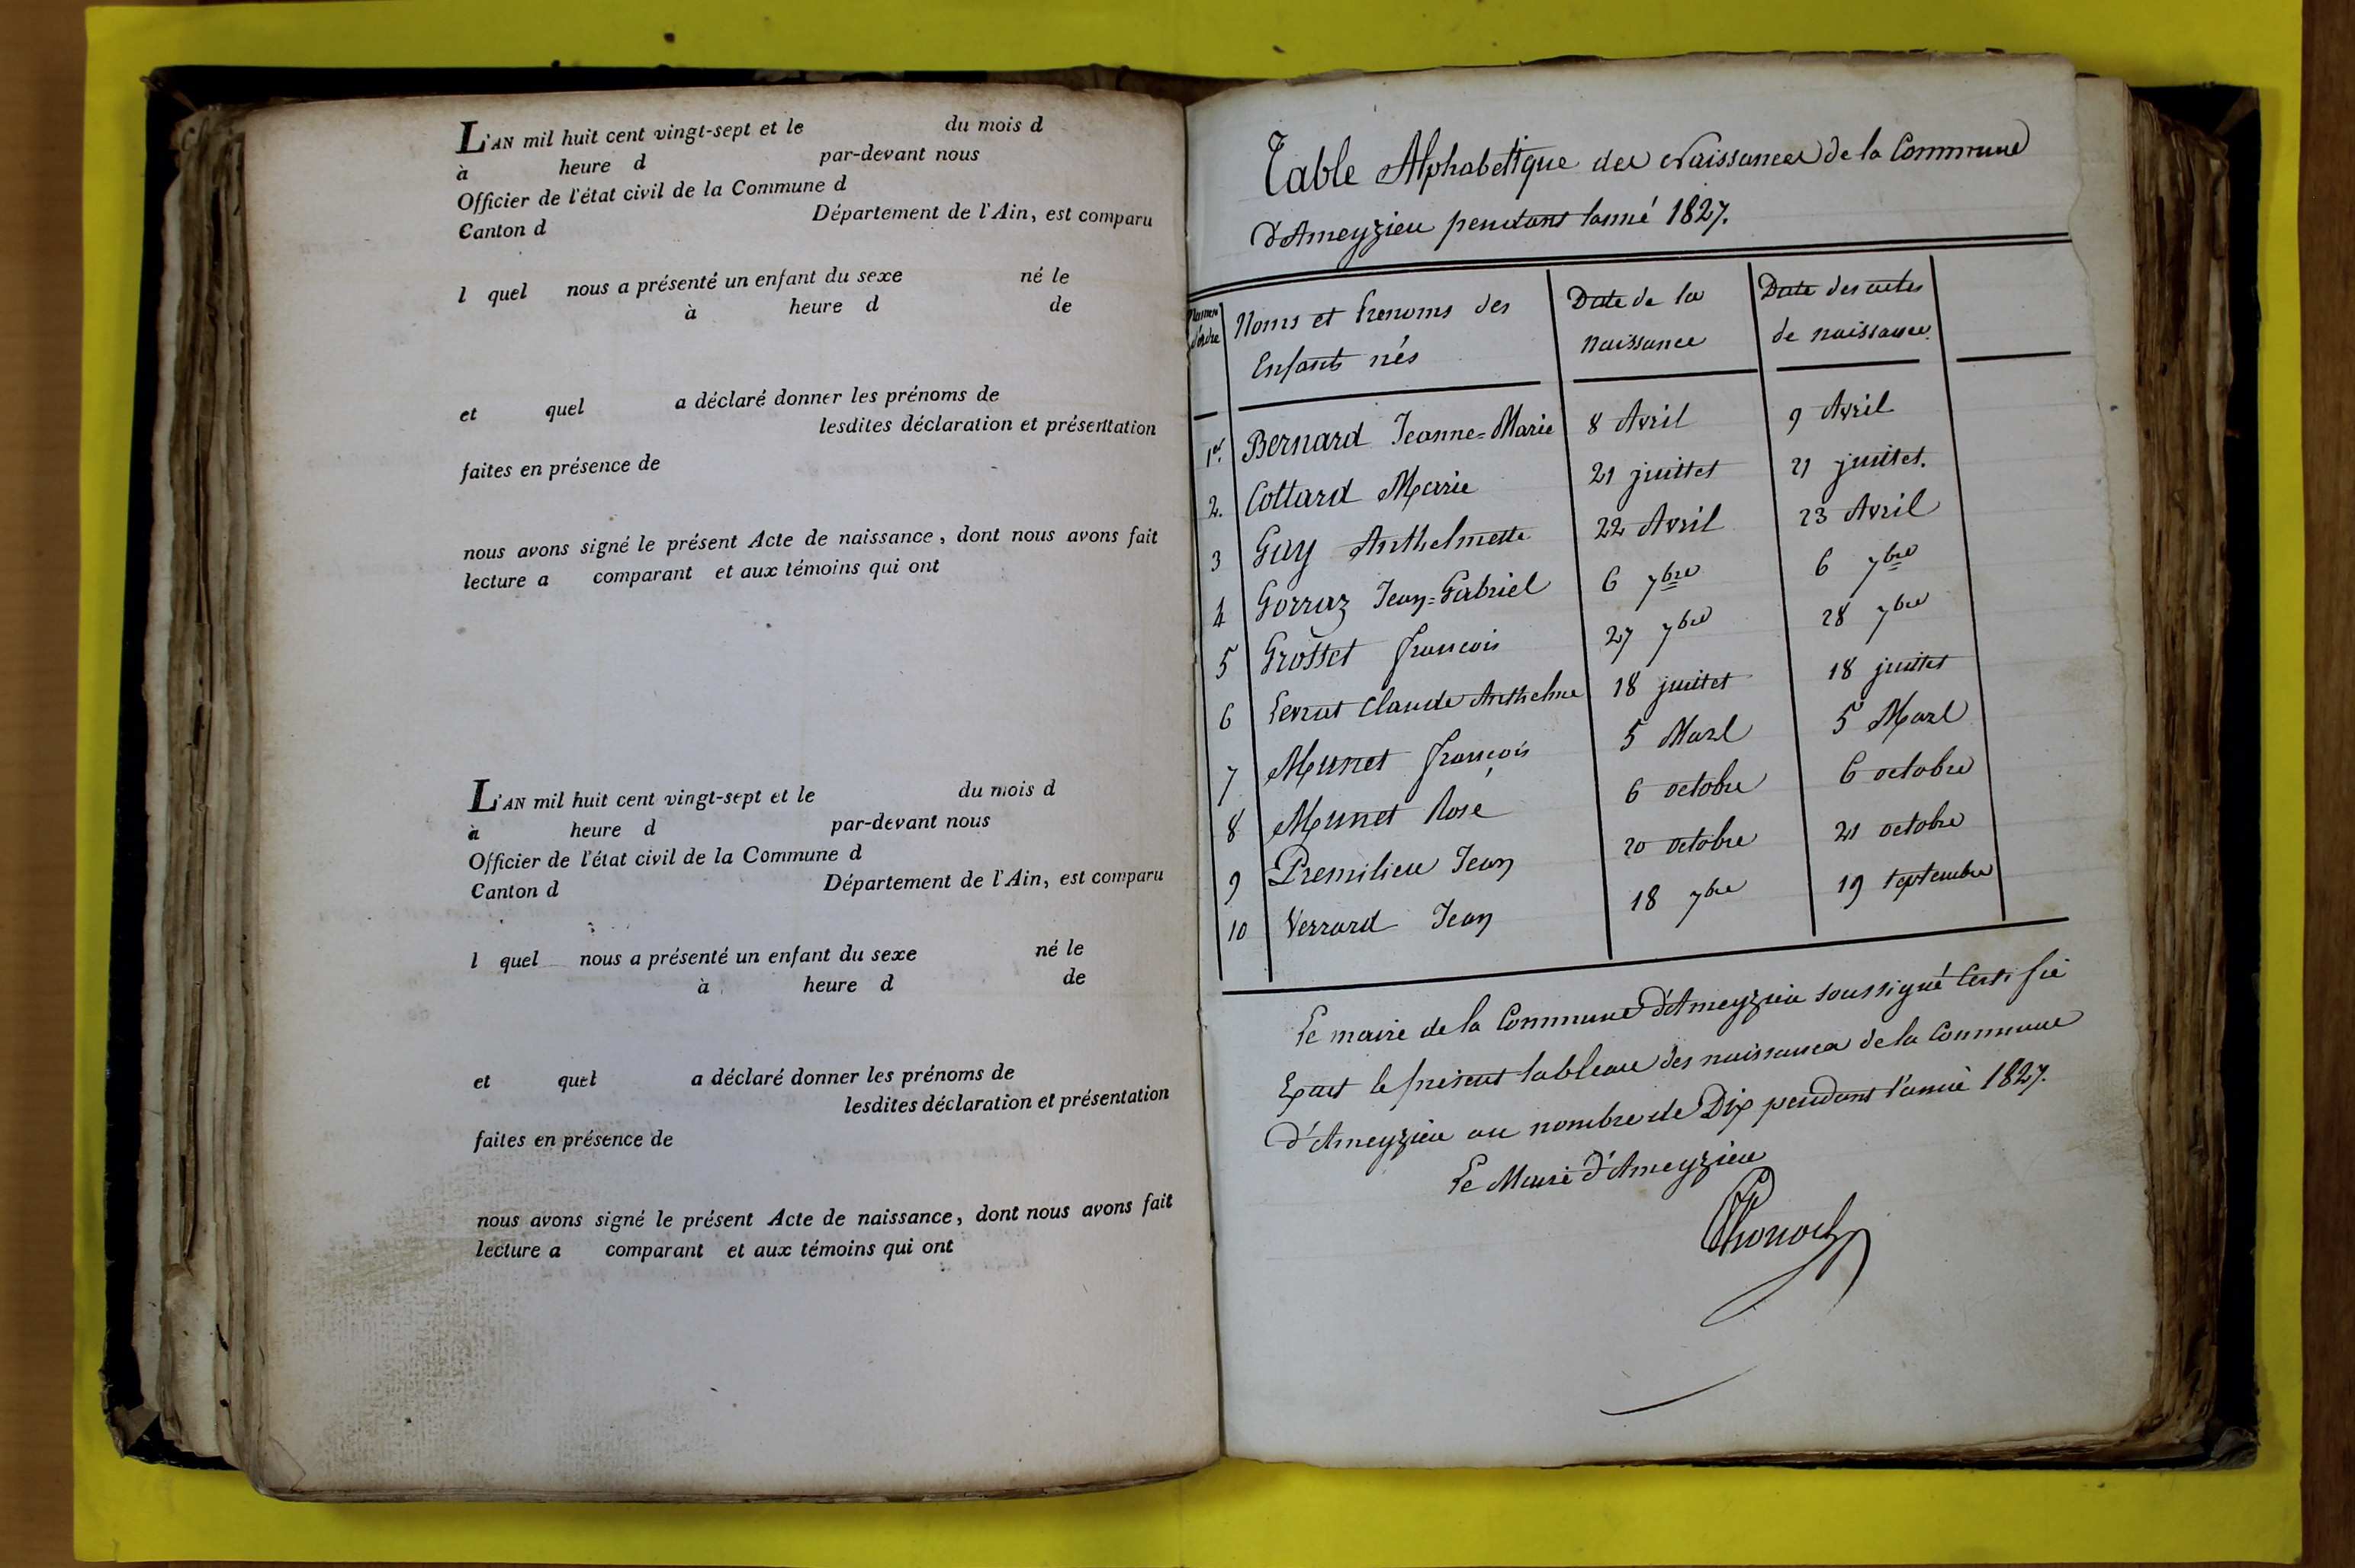 L'AN mil huit cent vingt-sept et le du mois d
à heure d par-devant nous
Officier de l'état civil de la Commune d
Canton d Département de l'Ain, est comparu
l quel nous a présenté un enfant du sexe né le
à heure d de
et quel a déclaré donner les prénoms de
lesdites déclaration et présentation
faites en présence de
nous avons signé le présent Acte de naissance, dont nous avons fait
lecture a comparant et aux témoins qui ont
L'AN mil huit cent vingt-sept et le du mois d
à heure d par-devant nous
Officier de l'état civil de la Commune d
Canton d Département de l'Ain, est comparu
l quel nous a présenté un enfant du sexe né le
à heure d de
et quel a déclaré donner les prénoms de
lesdites déclaration et présentation
faites en présence de
nous avons signé le présent Acte de naissance, dont nous avons fait
lecture a comparant et aux témoins qui ont
Table Alphabetique des Naissances de la Commune
d'Ameyzieu pendant lanné 1827.
d'ordre Noms et Prenoms des Enfants nés Date de la naissance Date des actes de naissance.
1er. Bernard Jeanne=Marie 8 Avril 9 Avril
2. Cottard Marie 21 juillet 21 juillet.
3 Guy Anthelmette 22 Avril 23 Avril
4 Gorraz Jean=Gabriel 6 7bre 6 7bre
5 Grosset francois 27 7bre 28 7bre
6 Levrat Claude Anthelme 18 juillet 18 juillet
7 Munet françois 5 Mars 5 Mars
8 Munet Rose 6 octobre 6 octobre
9 Premilieu Jean 20 octobre 21 octobre
10 Verrard Jean 18 7bre 19 septembre
Le maire de la Commune d'Ameyzieu soussigné Certifie
Exact le présent tableau des naissances de la Commune
d'Ameyzieu au nombre de Dix pendant l'année 1827.
Le Maire d'Ameyzieu